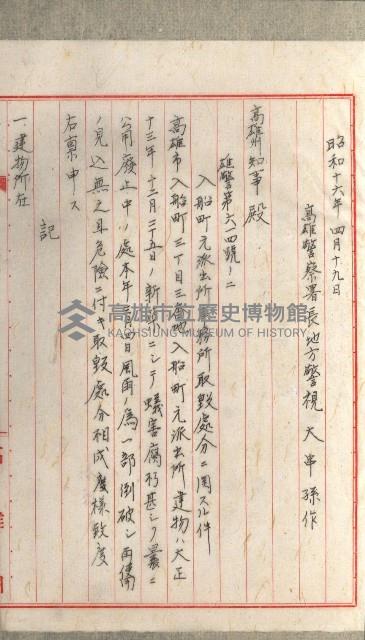 昭和十六年四月十九日
高雄警察署長地方警視 大串孫作
高雄州知事殿
雄警第六二四號ノ二
入船町元派出所事務所取毀處分ニ関スル件
高雄市入船町三丁目三番地入船町元派出所建物ハ大正
十三年十二月二十五日ノ新築ニシテ蟻害腐朽甚シク曩ニ
公用廢止中ノ處本年 月四日風雨ノ為一部倒破シ再修
ノ見込無之且危險ニ付キ取毀處分相成度様致度
右稟申ス
記
一 建物所在
高雄市立歷史博物館
KAOHSIUNG MUSEUM OF HISTORY